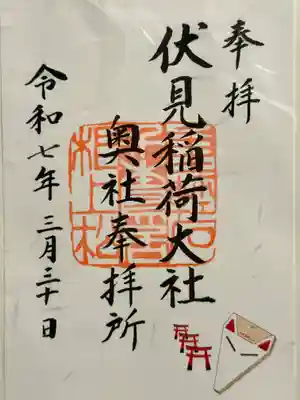 奉拝
伏見稲荷大社
奥社奉拝所
令和七年三月三十日